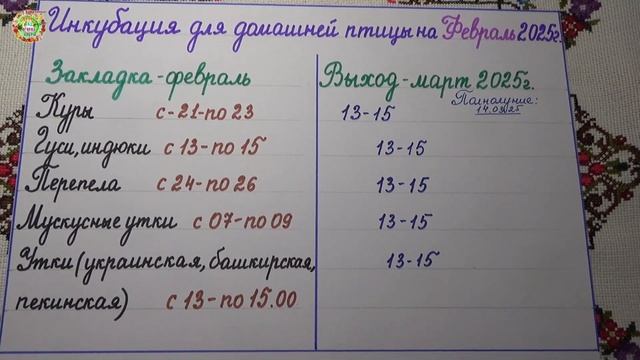 Инкубация для домашней птицы на Февраль 2025г.
Закладка - февраль Выход - март 2025г.
Полнолуние:
14.03.25
Куры с - 21 - по 23 13 - 15
Гуси, индюки с 13 - по 15 13 - 15
Перепела с 24 - по 26 13 - 15
Мускусные утки с 07 - по 09 13 - 15
Утки (украинская, башкирская, 13 - 15
пекинская) с 13 - по 15.00